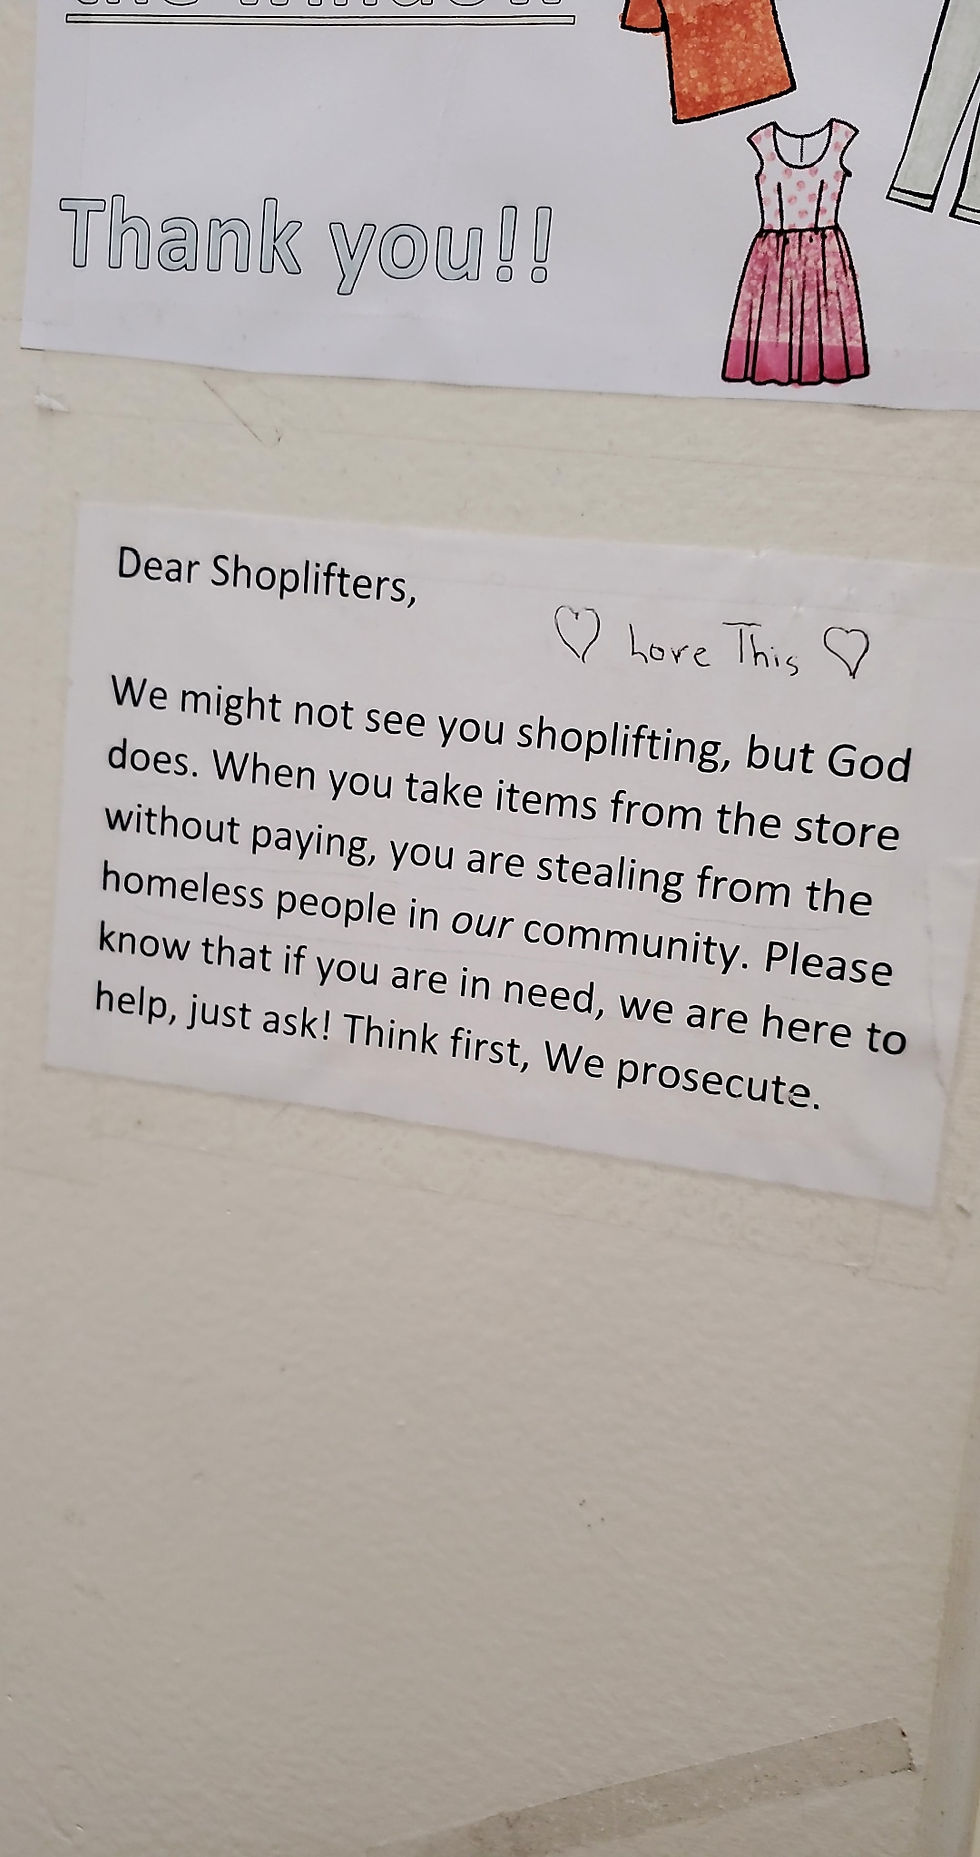 the window
Thank you!!
Dear Shoplifters,
♡ Love This ♡
We might not see you shoplifting, but God
does. When you take items from the store
without paying, you are stealing from the
homeless people in our community. Please
know that if you are in need, we are here to
help, just ask! Think first, We prosecute.